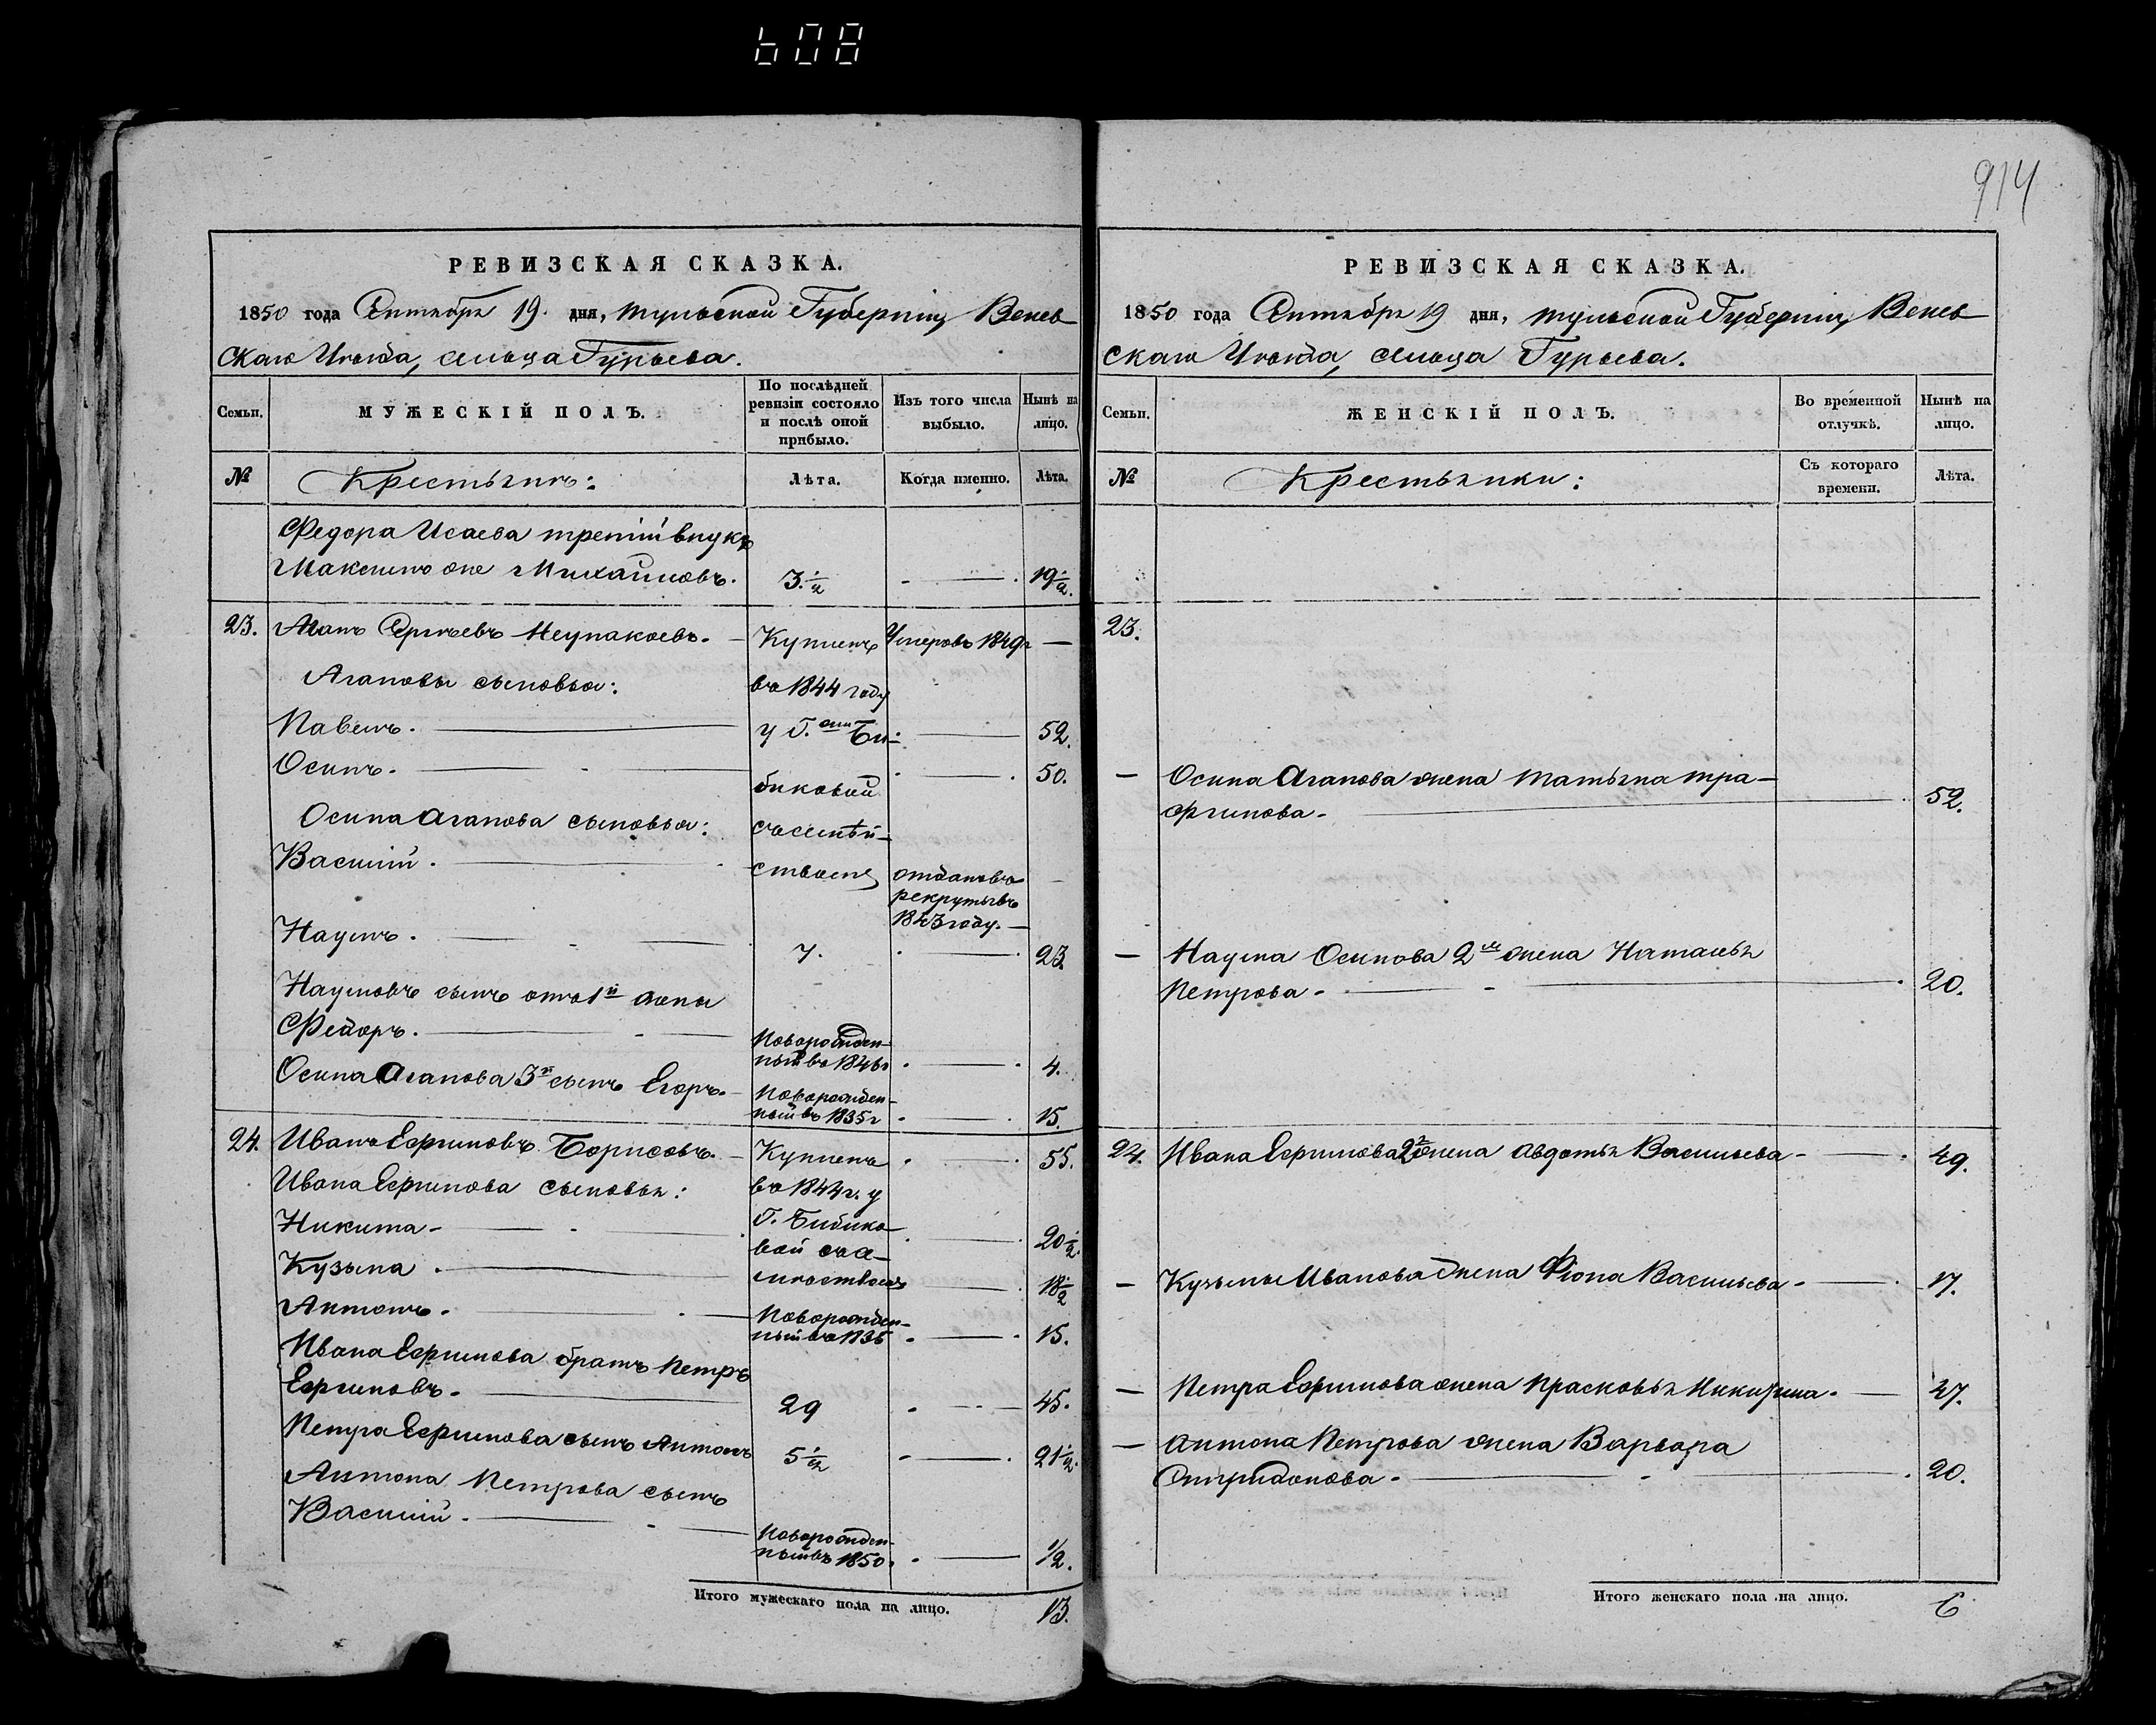 608
914
РЕВИЗСКАЯ СКАЗКА.
1850 года Сентября 19. дня, Тульской Губерніи, Венев
скаго Уѣзда, сельца Гурьева.
Семьи.
МУЖЕСКІЙ ПОЛЪ.
По послѣдней ревизіи состояло и послѣ оной прибыло.
Изъ того числа выбыло.
Нынѣ на лицо.
№
Крестьянъ:
Лѣта.
Когда именно.
Лѣта.
Федора Исаева третій внукъ
Максимъ же Михайловъ. 3.½ - 19½.
23. Агапъ Сергѣевъ Неупакоевъ. - Купленъ Умеръ въ 1849г -
Агаповы сыновья: въ 1844 году
Павелъ. у Г.жи Би- 52.
Осипъ. - 50.
биковой
Осипа Агапова сыновья: съ семѣй-
Василий. ствомъ отданъ въ
рекруты въ
1843 году. -
Наумъ. 7. 23.
Наумовъ сынъ отъ 1й жены
Федоръ. Новорожден-
ный въ 1846г 4.
Осипа Агапова 3й сынъ Егоръ. - Новорожден-
ный въ 1835г 15.
24. Иванъ Ефимовъ Борисовъ. - Купленъ 55.
Ивана Ефимова сыновья: въ 1844г. у
Никита - Г. Бибико- 20½.
вой съ се-
Кузьма. мѣствомъ 18½
Антонъ. Новорожден-
ный въ 1835 15.
Ивана Ефимова братъ Петръ
Ефимовъ. 29 45.
Петра Ефимова сынъ Антонъ 5½ 21½.
Антона Петрова сынъ
Василий. Новорожден-
ный въ 1850г ½.
Итого мужескаго пола на лицо. 13.
РЕВИЗСКАЯ СКАЗКА.
1850 года Сентября 19 дня, Тульской Губерніи, Венев
скаго Уѣзда, сельца Гурьева.
Семьи.
ЖЕНСКІЙ ПОЛЪ.
Во временной отлучкѣ.
Нынѣ на лицо.
№
Крестьянки:
Съ котораго времени.
Лѣта.
23.
- Осипа Агапова жена Татьяна Тра-
фимова. 52.
- Наума Осипова 2я жена Наталья
Петрова - 20.
24. Ивана Ефимова 2я жена Авдотья Васильева - 49.
- Кузьмы Иванова жена Фіона Васильева - 17.
- Петра Ефимова жена Прасковья Никитина. - 47.
- Антона Петрова жена Варвара
Спиридонова - 20.
Итого женскаго пола на лицо. 6